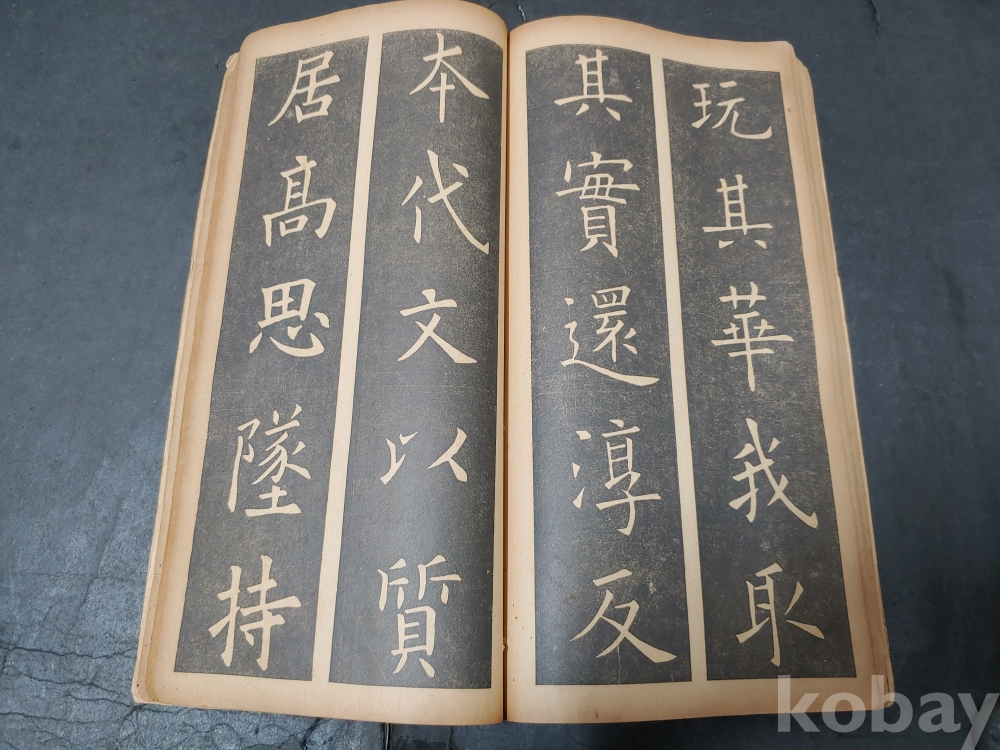 玩其華我取
其實還淳反
本代文以質
居高思墜持
kobay